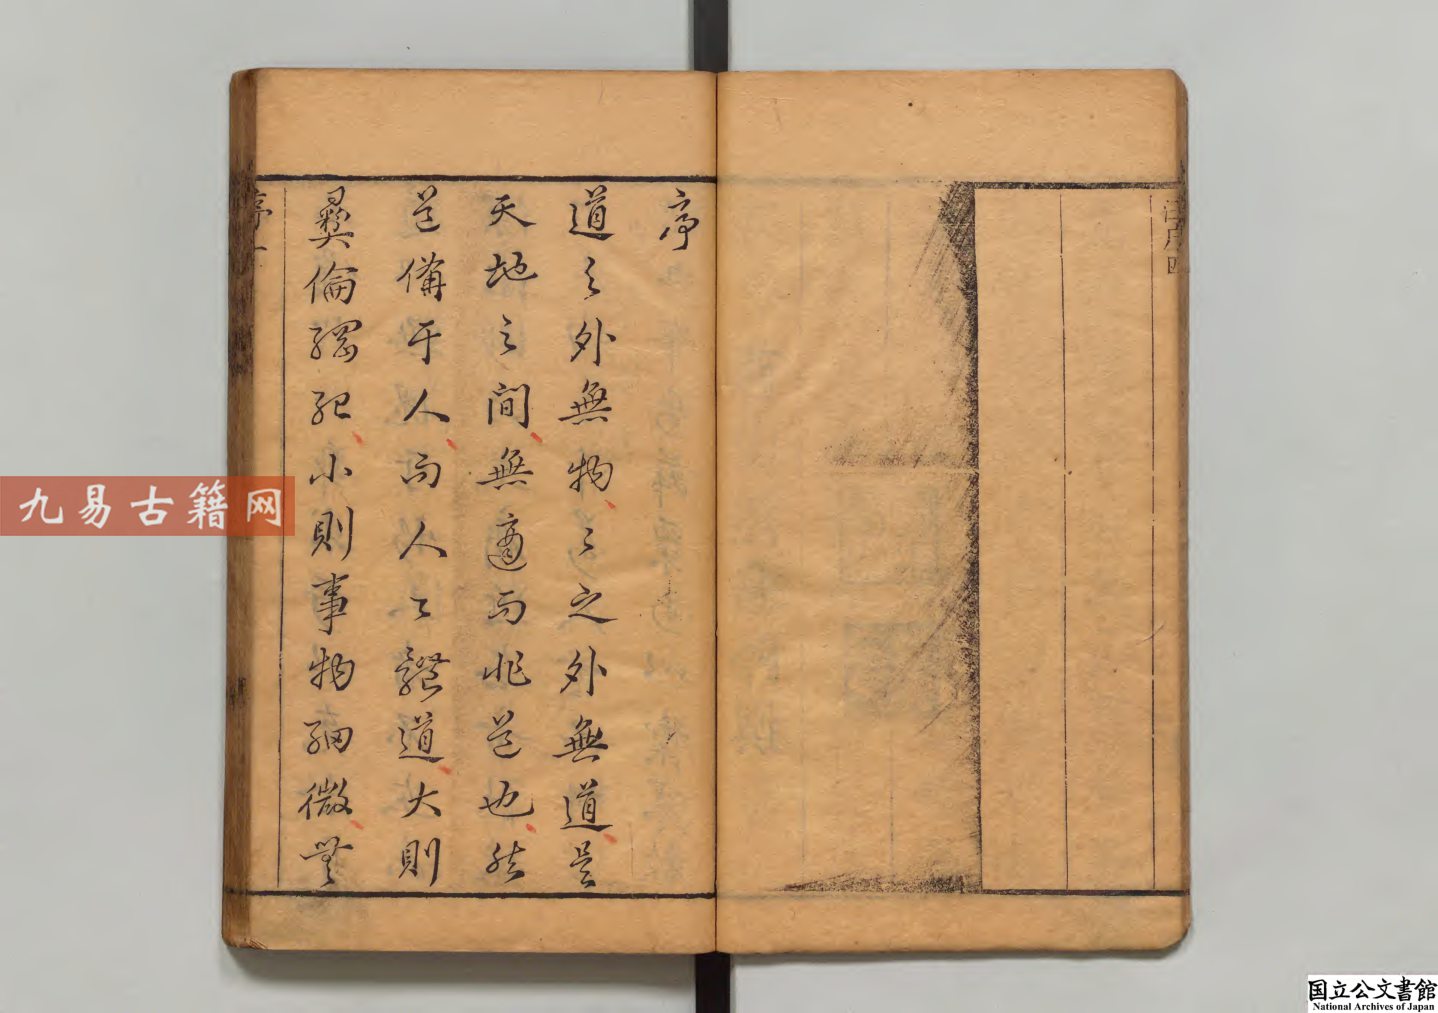 汪序 四
序
道之外無物ミ之外無道是
天地之間無適而非道也然
道備于人而人ミ體道大則
彝倫綱紀小則事物細微無
序 一
九易古籍网
国立公文書館
National Archives of Japan